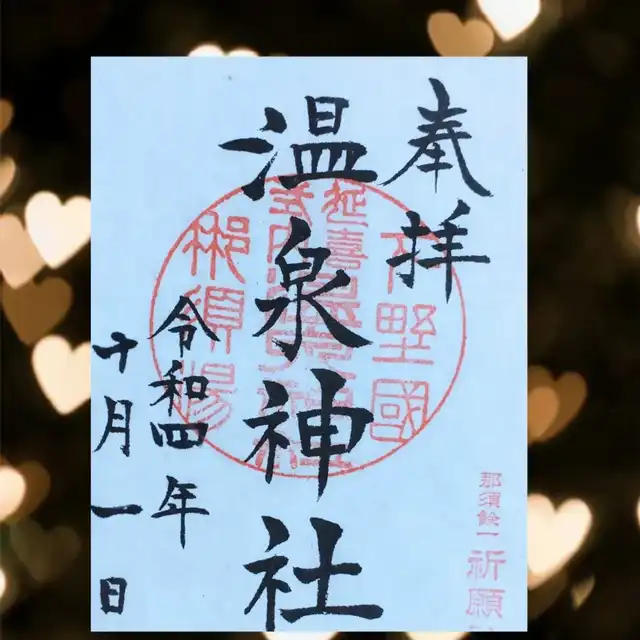 奉拝
下野國
延喜式内
那須湯
温泉神社
令和四年
十月一日
那須餘一
祈願